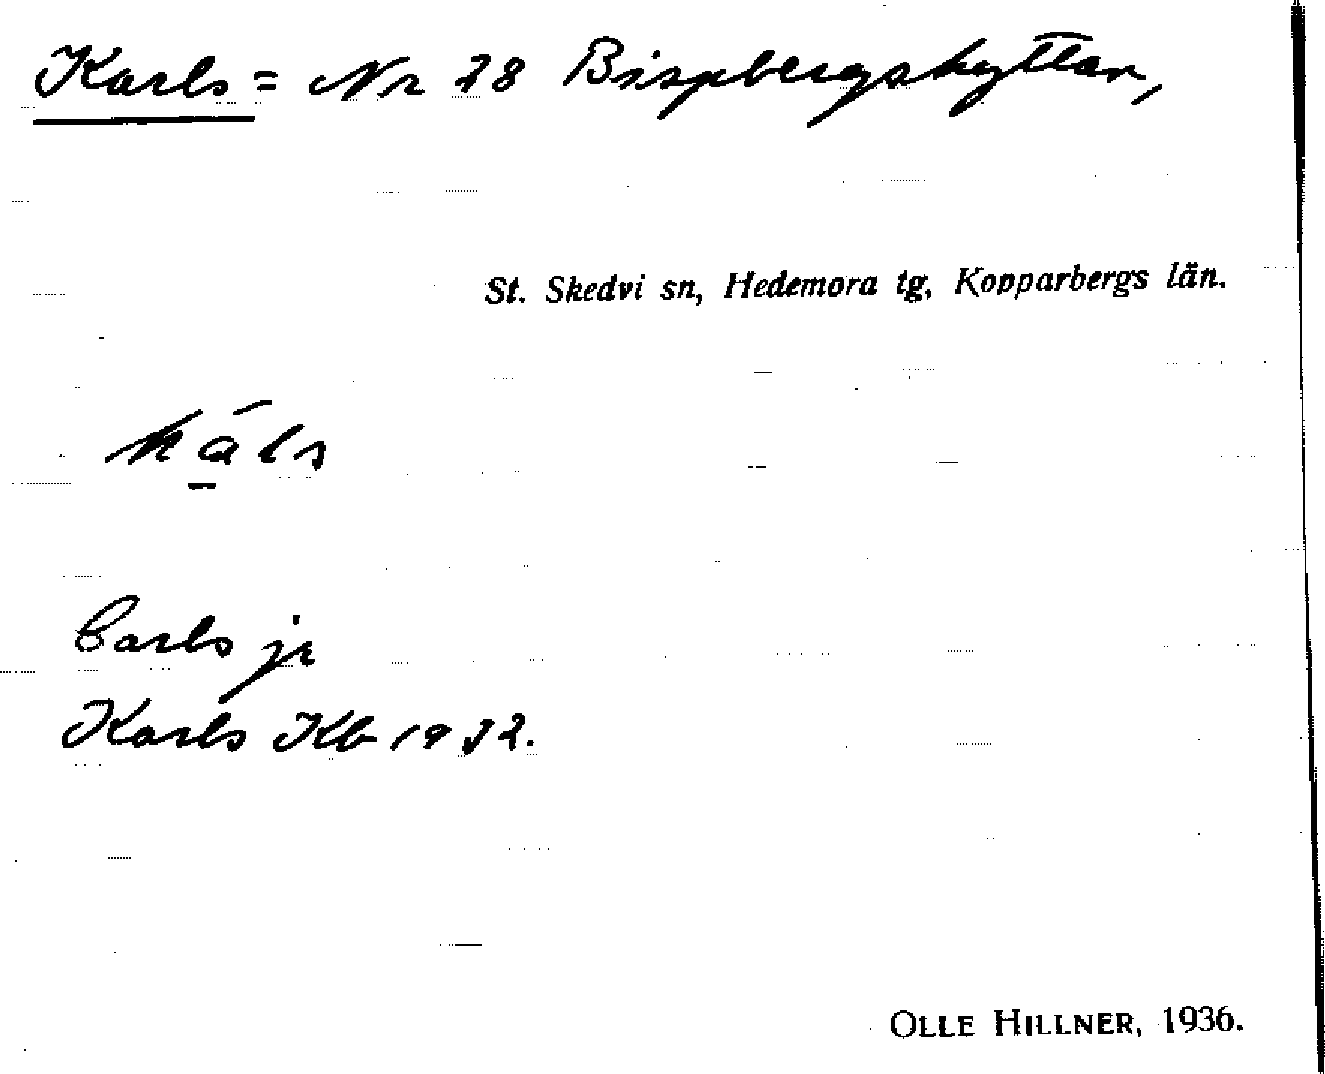 Karls = Nr 28 Bispbergshyttan,
St. Skedvi sn, Hedemora tg, Kopparbergs län.
Carls jr
Karls Kb 1932.
OLLE HILLNER, 1936.